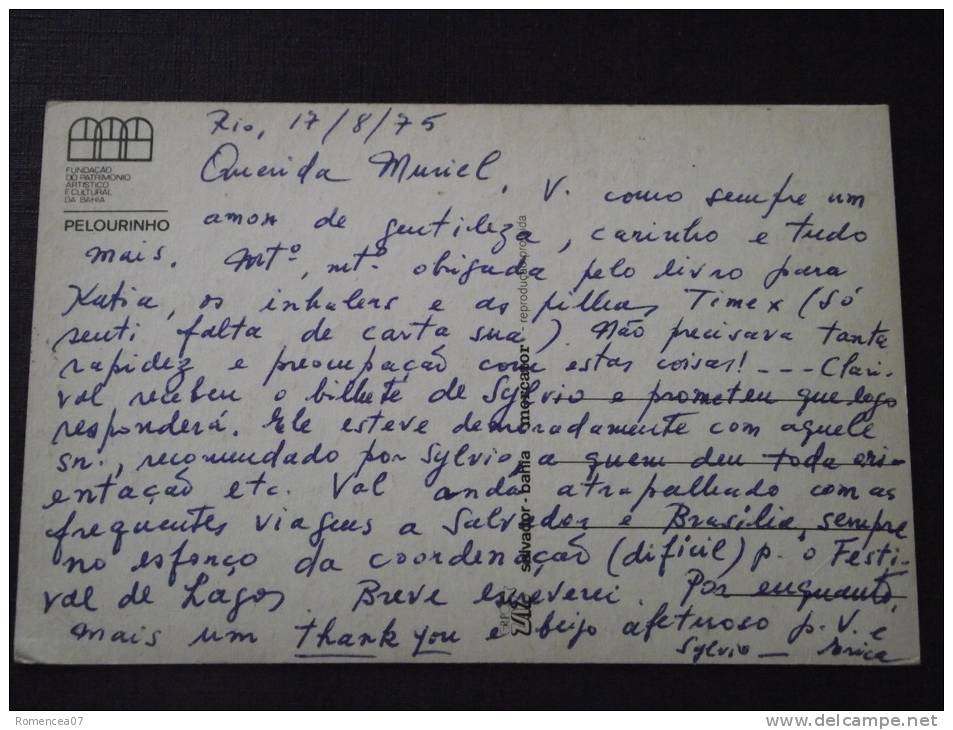 FUNDAÇÃO
DO PATRIMONIO
ARTÍSTICO
E CULTURAL
DA BAHIA
PELOURINHO
Rio, 17/8/75
Querida Muriel,
V. como sempre um
amor de gentileza, carinho e tudo
mais. Mtº, mtº obrigada pelo livro para
Katia, os inhalers e as pilhas Timex (Só
senti falta de carta sua). Não precisava tanta
rapidez e preocupação com estas coisas! --- Clari-
val recebeu o bilhete de Sylvio e prometeu que logo
responderá. Ele esteve demoradamente com aquele
sr., recomendado por Sylvio, a quem deu toda ori-
entação etc. Val anda atrapalhado com as
frequentes viagens a Salvador e Brasília, sempre
no esforço da coordenação (difícil) p. o Festi-
val de Lagos. Breve escreverei. Por enquanto,
mais um thank you e beijo afetuoso p. V. e
Sylvio _
salvador - bahia mercator - reprodução proibida
Romencea07
www.delcampe.net